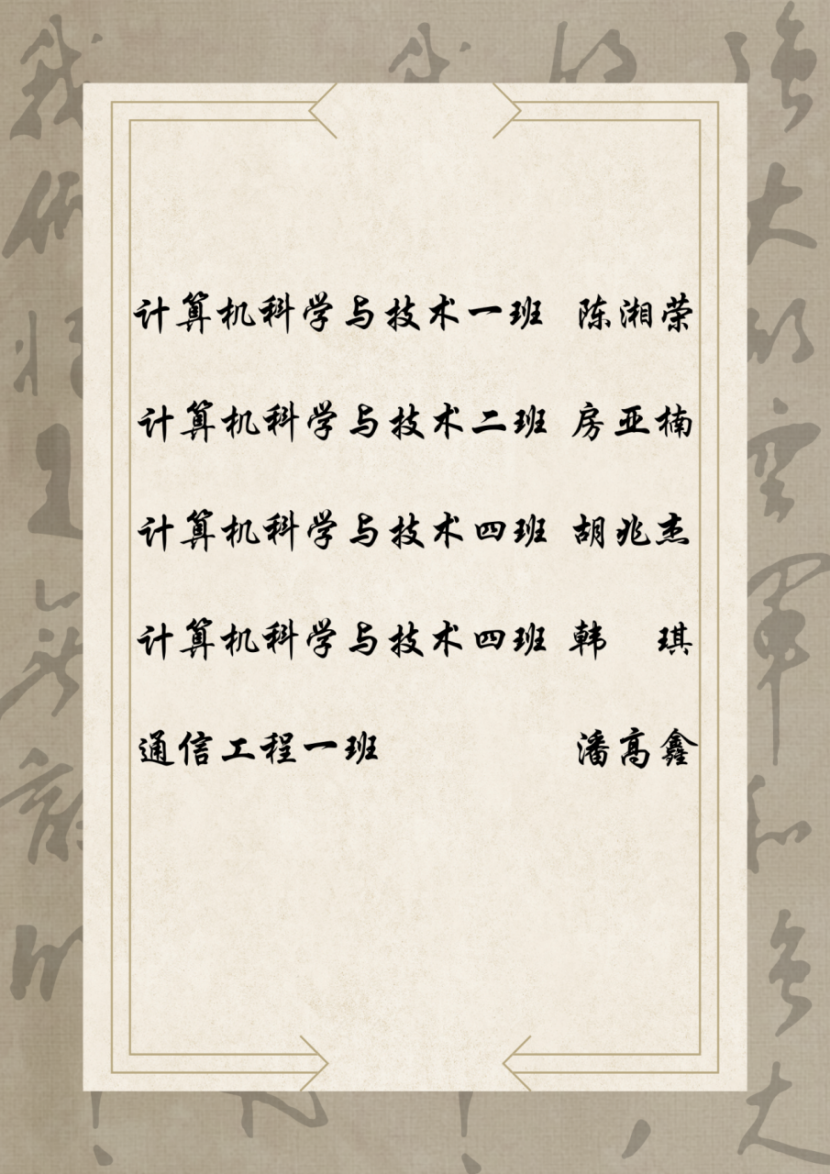 计算机科学与技术一班 陈湘荣
计算机科学与技术二班 房亚楠
计算机科学与技术四班 胡兆杰
计算机科学与技术四班 韩 琪
通信工程一班 潘高鑫